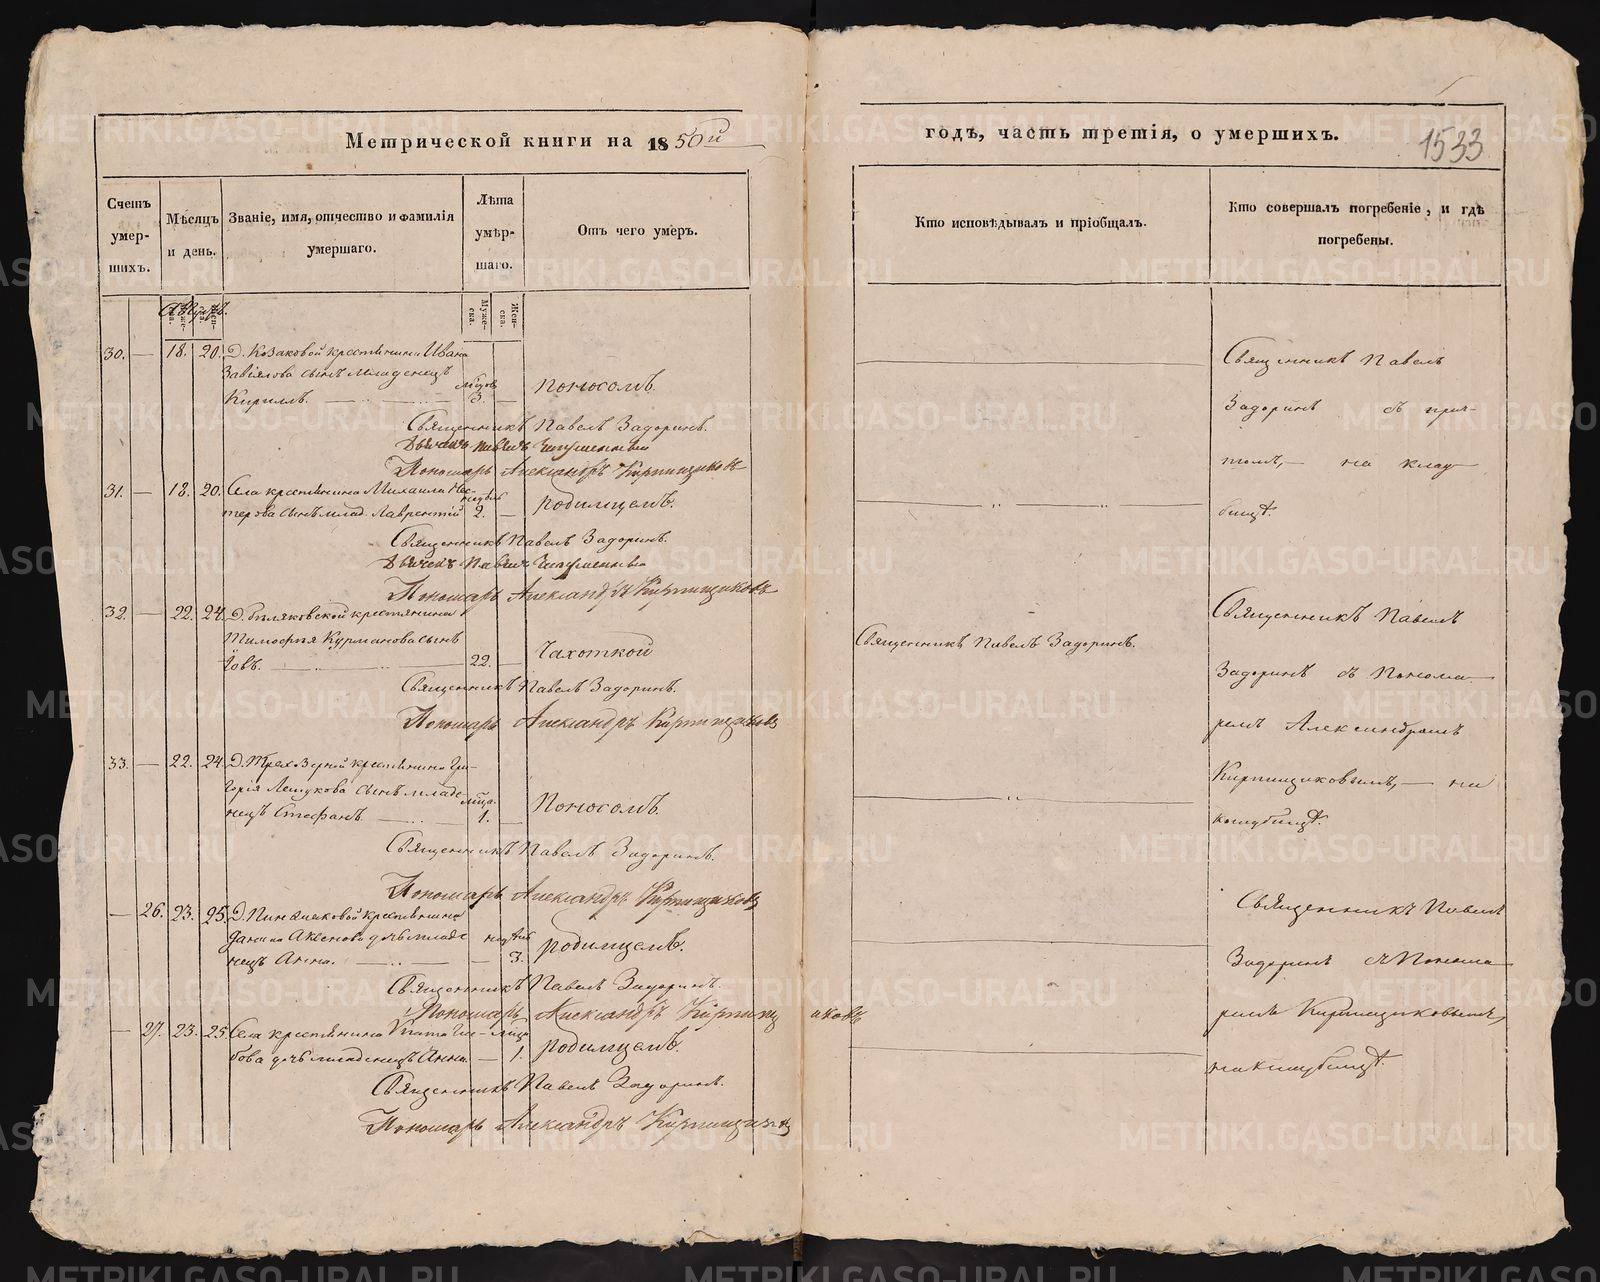 Метрической книги на 1850й
Счетъ умер-шихъ.
Мѣсяцъ и день.
Званіе, имя, отчество и фамилія умершаго.
Лѣта умер-шаго.
Отъ чего умеръ.
Муже-ска.
Жен-ска.
30. — 18. 20. Д. Козаковой крестьянина Ивана
Завіялова сынъ младенецъ
Кириллъ. 3. — Поносомъ.
Священникъ Павелъ Задоринъ.
Дьячекъ Павелъ
Пономарь Александръ Кирпищиковъ
31. — 18. 20. Села крестьянина Михаила Нес-
терова сынъ млад. Лаврентій 2. — Родимцемъ.
Священникъ Павелъ Задоринъ.
Дьячекъ Павелъ
Пономарь Александръ Кирпищиковъ
32. — 22. 24. Д. Бѣляковской крестьянина
Тимофея Курманова сынъ
Іовъ. 22. — Чахоткой
Священникъ Павелъ Задоринъ.
Пономарь Александръ Кирпищиковъ
33. — 22. 24. Д. Трехозерной крестьянина Гри-
горія Лешукова сынъ младе-
нецъ Стефанъ 1. — Поносомъ.
Священникъ Павелъ Задоринъ.
Пономарь Александръ Кирпищиковъ
— 26. 23. 25. Д. крестьянина
Данила Аксенова дочь младе-
нецъ Анна. — 3. Родимцемъ.
Священникъ Павелъ Задоринъ.
Пономарь Александръ Кирпищиковъ
— 27. 23. 25. Села крестьянина
бова дочь младенецъ Анна. — 1. Родимцемъ.
Священникъ Павелъ Задоринъ.
Пономарь Александръ Кирпищиковъ
годъ, часть третія, о умершихъ.
1533
Кто исповѣдывалъ и пріобщалъ.
Кто совершалъ погребеніе, и гдѣ погребены.
Священникъ Павелъ
Задоринъ съ прич-
томъ, — на клад-
бищѣ.
Священникъ Павелъ Задоринъ.
Священникъ Павелъ
Задоринъ съ Понома-
ремъ Александромъ
Кирпищиковымъ, — на
кладбищѣ.
Священникъ Павелъ
Задоринъ съ Понома-
ремъ Кирпищиковымъ,
на кладбищѣ.
METRIKI.GASO-URAL.RU